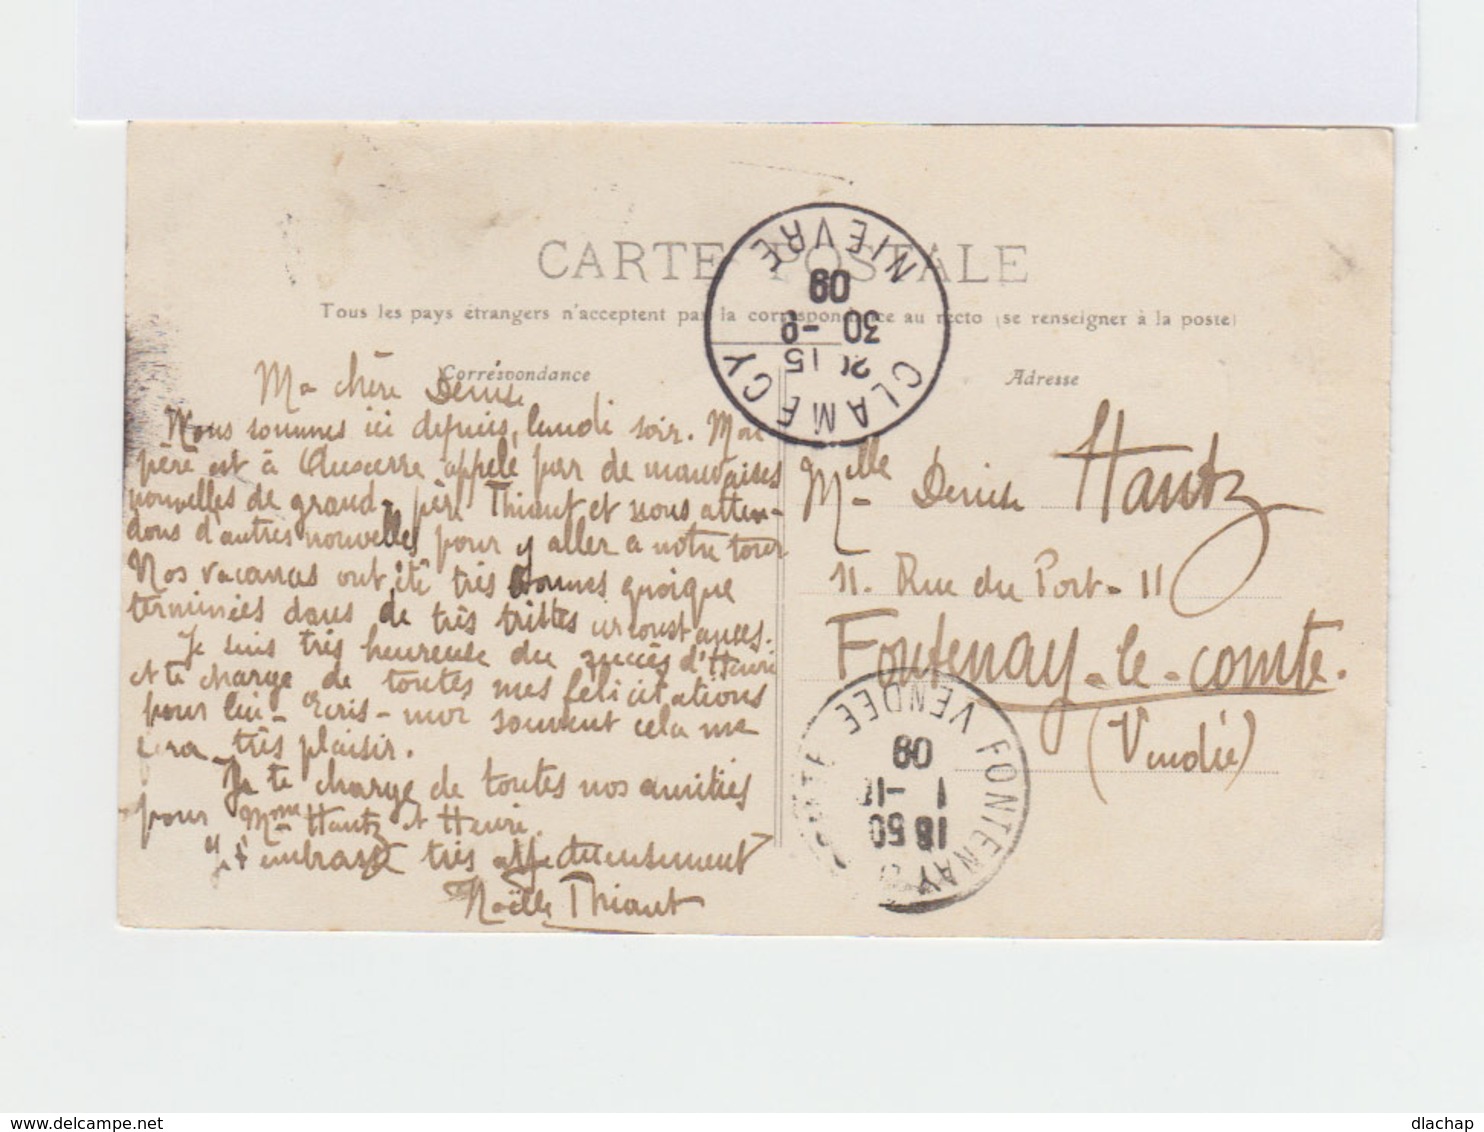 CARTE POSTALE
Tous les pays étrangers n'acceptent pas la correspondance au recto (se renseigner à la poste)
Correspondance
Adresse
CLAMECY
NIEVRE
20 15
30 -9
09
Ma chère Denise
Nous sommes ici depuis lundi soir. Mon
père est à Auxerre appelé par de mauvaises
nouvelles de grand-père Thiaut et nous atten-
dons d'autres nouvelles pour y aller a notre tour
Nos vacances ont été très bonnes quoique
terminées dans de très tristes circonstances.
Je suis très heureuse du succès d'Henri
et te charge de toutes mes félicitations
pour lui. Ecris-moi souvent cela me
fera très plaisir.
Je te charge de toutes nos amitiés
pour Mme Hautz et Henri.
Je t'embrasse très affectueusement
Noëlle Thiaut
Melle Denise Hautz
11. Rue du Port. 11
Fontenay-le-comte.
(Vendée)
FONTENAY
VENDEE
18 50
1 -10
09
delcampe.net
dlachap